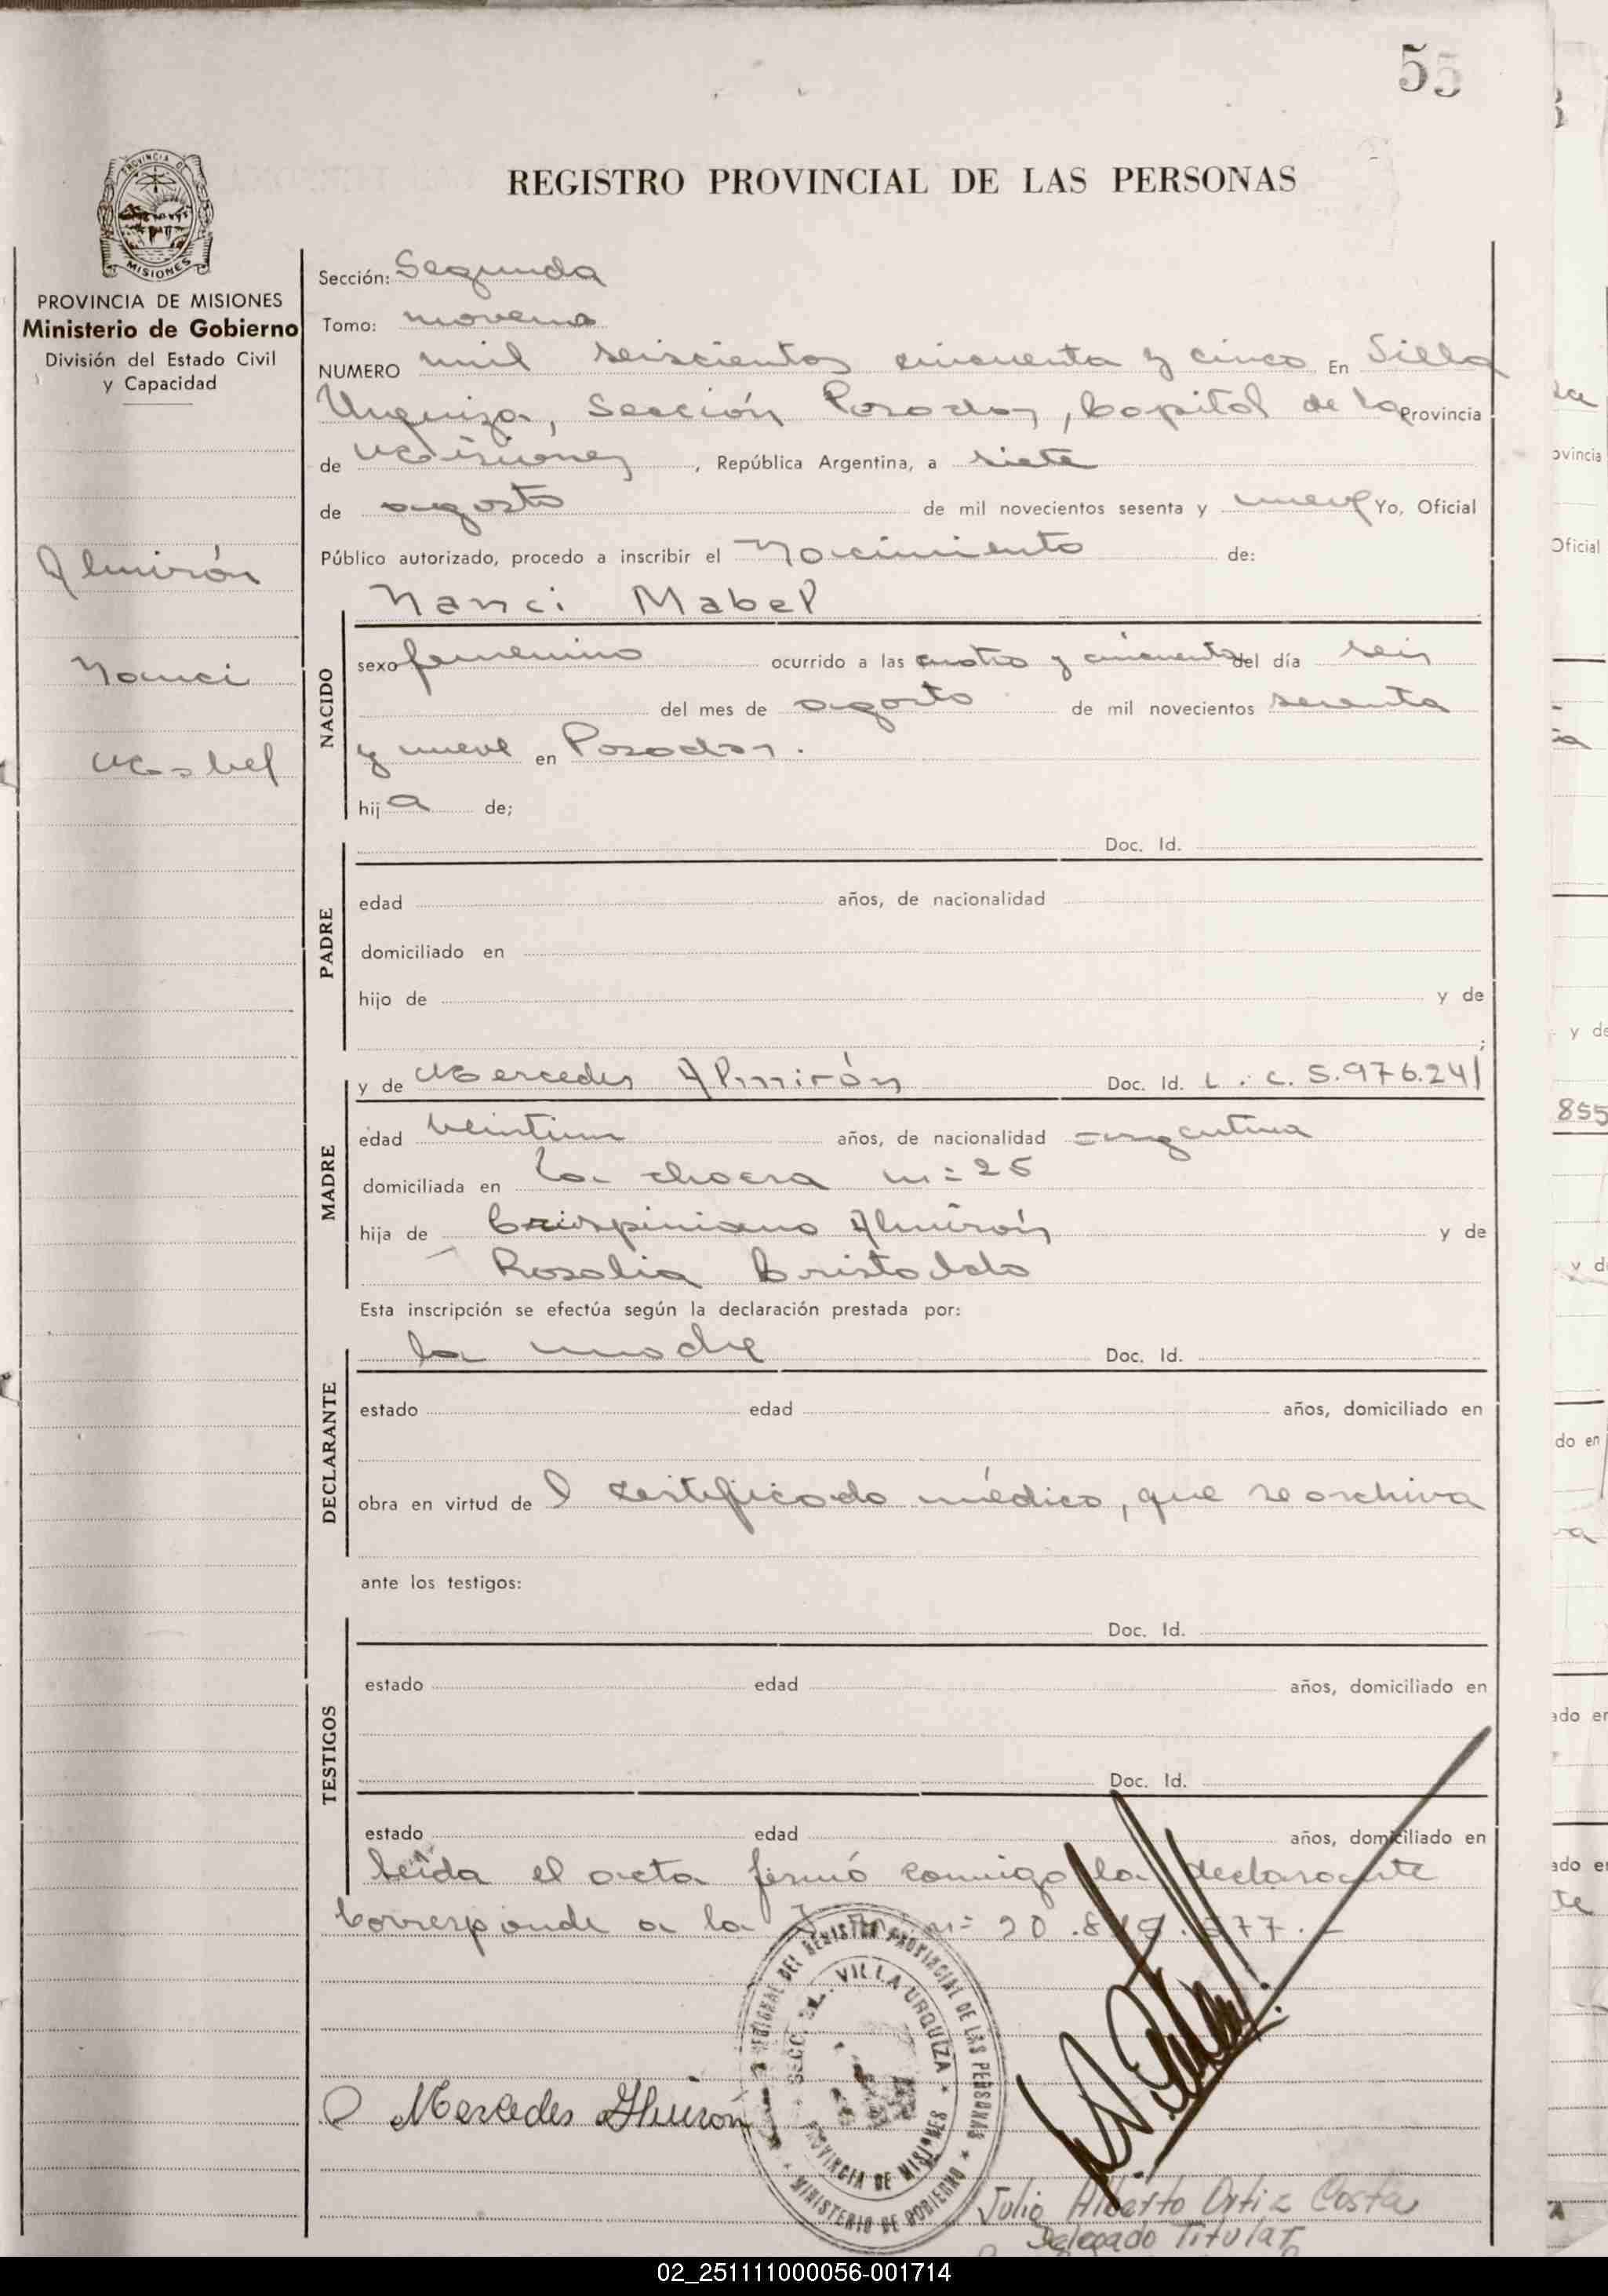 55
REGISTRO PROVINCIAL DE LAS PERSONAS
PROVINCIA DE
MISIONES
PROVINCIA DE MISIONES
Ministerio de Gobierno
División del Estado Civil
y Capacidad
Almirón
Nanci
Mabel
Sección: Segunda
Tomo: novena
NUMERO mil seiscientos cincuenta y cinco En Villa
Urquiza, Sección Posadas, Capital de la Provincia
de Misiones, República Argentina, a siete
de agosto de mil novecientos sesenta y nueve Yo, Oficial
Público autorizado, procedo a inscribir el Nacimiento de:
Nanci Mabel
NACIDO
sexo femenino ocurrido a las cuatro y cincuenta del día seis
del mes de agosto de mil novecientos sesenta
y nueve en Posadas.
hija de;
PADRE
Doc. Id.
edad años, de nacionalidad
domiciliado en
hijo de y de
;
MADRE
y de Mercedes Almirón Doc. Id. L. C. 5.976.241
edad veintiun años, de nacionalidad argentina
domiciliada en la chacra n= 25
hija de Crispiniano Almirón y de
Rosalia Cristaldo
Esta inscripción se efectúa según la declaración prestada por:
DECLARANTE
la madre Doc. Id.
estado edad años, domiciliado en
obra en virtud de l certificado médico, que se archiva
ante los testigos:
TESTIGOS
Doc. Id.
estado edad años, domiciliado en
Doc. Id.
estado edad años, domiciliado en
leída el acta firmó conmigo la declarante
Corresponde a la n= 20.
REGIONAL DEL REGISTRO PROVINCIAL DE LAS PERSONAS
SECC. VILLA URQUIZA
PROVINCIA DE MISIONES
MINISTERIO DE GOBIERNO
Mercedes Almirón
Julio Alberto Ortiz Costa
Delegado Titular
02_251111000056-001714